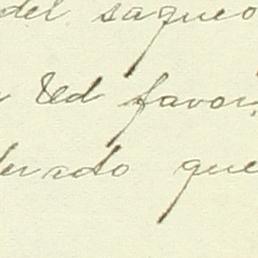 del saqueo
Ud favor
que